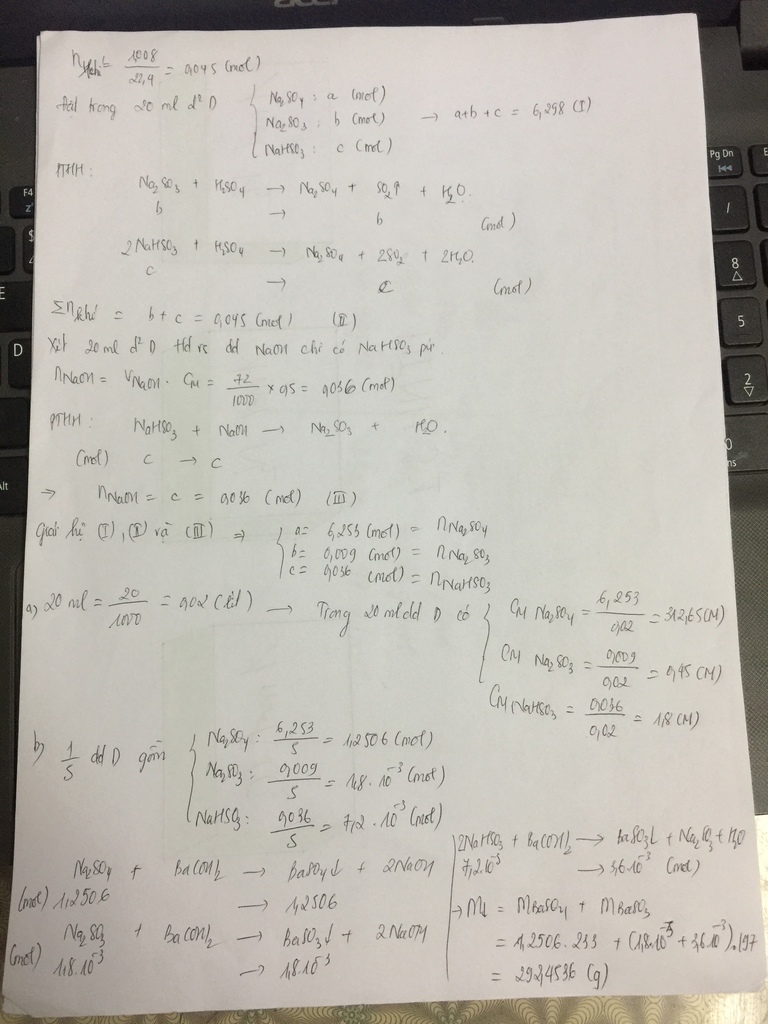 n khí = 1008/22,4 = 0,045 (mol)
Đặt trong 20 ml d² D { Na₂SO₄ : a (mol)
Na₂SO₃ : b (mol) → a+b+c = 6,298 (I)
NaHSO₃ : c (mol)
PTHH :
Na₂SO₃ + H₂SO₄ → Na₂SO₄ + SO₂↑ + H₂O.
b → b (mol)
2NaHSO₃ + H₂SO₄ → Na₂SO₄ + 2SO₂ + 2H₂O.
c → c (mol)
Σn khí = b + c = 0,045 (mol) (II)
Xét 20 ml d² D td vs dd NaOH chỉ có NaHSO₃ pư.
nNaOH = VNaOH . CM = 72/1000 × 0,5 = 0,036 (mol)
PTHH : NaHSO₃ + NaOH → Na₂SO₃ + H₂O.
(mol) c → c
⇒ nNaOH = c = 0,036 (mol) (III)
Giải hệ (I), (II) và (III) ⇒ { a = 6,253 (mol) = nNa₂SO₄
b = 0,009 (mol) = nNa₂SO₃
c = 0,036 (mol) = nNaHSO₃
a) 20 ml = 20/1000 = 0,02 (lít) → Trong 20 ml dd D có { CM Na₂SO₄ = 6,253/0,02 = 312,65 (M)
CM Na₂SO₃ = 0,009/0,02 = 0,45 (M)
CM NaHSO₃ = 0,036/0,02 = 1,8 (M)
b) 1/5 dd D gồm { Na₂SO₄ : 6,253/5 = 1,2506 (mol)
Na₂SO₃ : 0,009/5 = 1,8.10⁻³ (mol)
NaHSO₃ : 0,036/5 = 7,2.10⁻³ (mol)
Na₂SO₄ + Ba(OH)₂ → BaSO₄↓ + 2NaOH
(mol) 1,2506 → 1,2506
Na₂SO₃ + Ba(OH)₂ → BaSO₃↓ + 2NaOH
(mol) 1,8.10⁻³ → 1,8.10⁻³
2NaHSO₃ + Ba(OH)₂ → BaSO₃↓ + Na₂SO₃ + H₂O
7,2.10⁻³ → 3,6.10⁻³ (mol)
→ m↓ = mBaSO₄ + mBaSO₃
= 1,2506.233 + (1,8.10⁻³ + 3,6.10⁻³).197
= 292,4536 (g)
acer
Pg Dn
F4
D
Alt
/
8
5
2
0